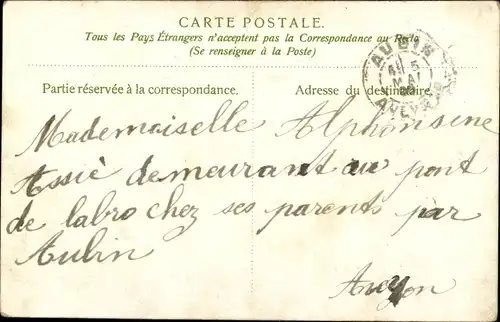 CARTE POSTALE.
Tous les Pays Étrangers n'acceptent pas la Correspondance au Recto
(Se renseigner à la Poste)
AUBIN
5
MAI
AVEYRON
Partie réservée à la correspondance.
Adresse du destinataire.
Mademoiselle Alphonsine
Assiè demeurant au pont
de labro chez ses parents par
Aubin
Aveyron